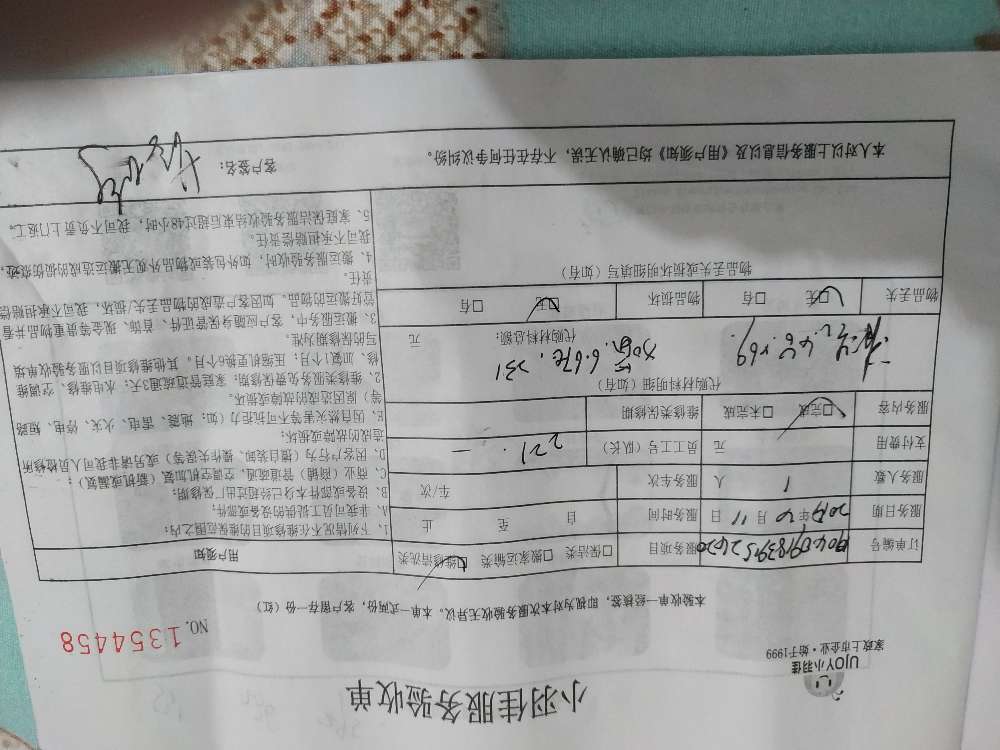 小羽佳服务验收单
UJOY小羽佳
家政上市企业·始于1999
NO. 1354458
本验收单一经核签，即视为对本次服务验收无异议。本单一式两份，客户留存一份（红）
订单编号
服务项目 □保洁类 □搬家运输类 □维修清洗类
用户须知
服务日期 年 月 11 日 服务时间 自 至 止
服务人数 1 人 服务车次 车/次
支付费用 元 员工工号（队长） 221.
服务内容 □完成 □未完成 维修类保修期
代购材料明细（如有）
代购材料总额： 元
物品丢失 □无 □有 物品损坏 □无 □有
物品丢失或损坏明细填写（如有）
1、下列情况不在维修项目的维保范围之内：
A、非我司员工提供的设备或部件；
B、设备或部件本身已经超过出厂保修期；
C、商业（商铺）管道疏通、空调空机加氨（新机或漏氨）；
D、因客户行为（擅自装卸、操作失误等）或另请非我司人员检修所
造成的故障或损坏；
E、因自然灾害等不可抗力（如：地震、雷电、火灾、停电、短路
等）原因造成的故障或损坏。
2、维修类服务免费保修期：家庭管道疏通3天；水电维修、空调维
修、加氨1个月；压缩机更换6个月。其他维修项目以服务验收单填
写的保修期为准。
3、搬运服务中，客户应随身保管证件、首饰、现金等贵重物品并看
管好搬运的物品，如因客户造成的物品丢失/损坏，我司不承担赔偿
责任。
4、搬运服务验收时，如外包装或物品外观无搬运造成的损伤痕迹，
我司不承担赔偿责任。
5、家庭保洁服务验收结束后超过48小时，我司不负责上门返工。
本人对以上服务信息以及《用户须知》均已确认无误，不存在任何争议纠纷。 客户签名：